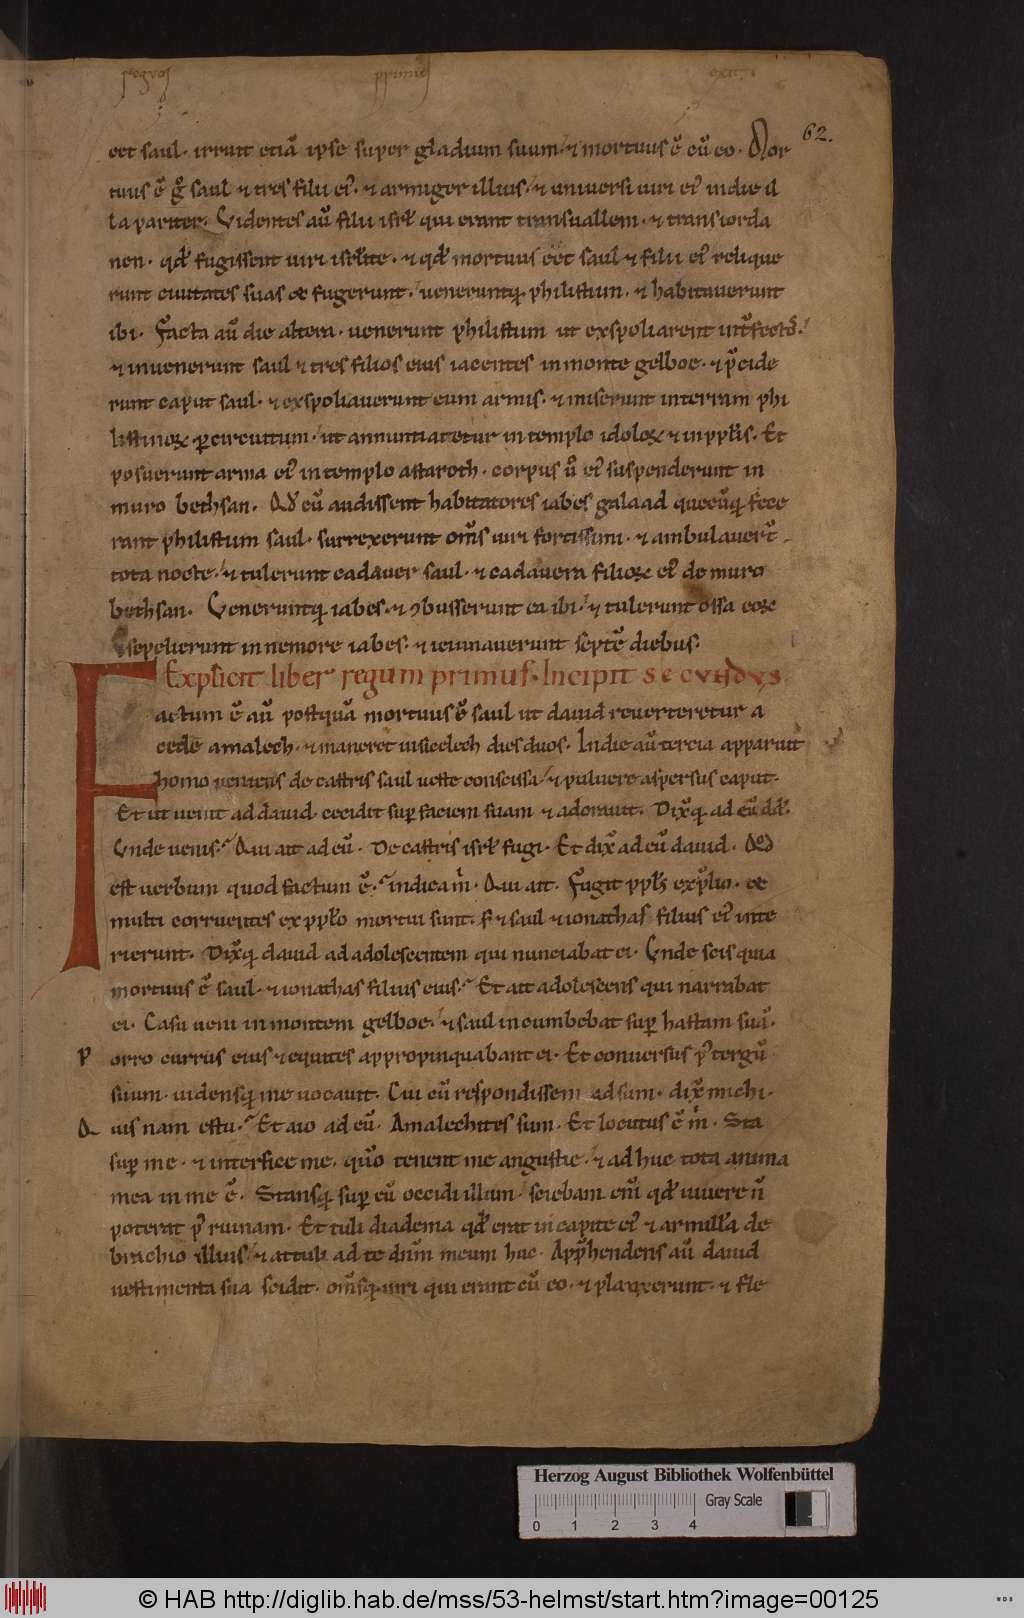 62.
eet saul. irruit etiā ipse super gladium suum. & mortuus ē cū eo. Mor
tuus ē gͦ saul & tres filii eiꝰ. & armiger illius. & universi uiri eiꝰ in die il
la pariter. Videntes aū filii isrł qui erant trans uallem. & trans iorda
nen. qđ fugissent uiri isrłite. & qđ mortuus eēt saul & filii eiꝰ relique
runt ciuitates suas & fugerunt. ueneruntq; philistiim. & habitauerunt
ibi. Facta aū die altera. uenerunt philistiim ut exspoliarent int̄fectos.
& inuenerunt saul & tres filios eius iacentes in monte gelboe. & p̄cide
runt caput saul. & exspoliauerunt eum armis. & miserunt in terram phi
listinoꝝ ꝑ circuitum. ut annuntiaretur in templo idoloꝝ & in ppłis. Et
posuerunt arma eiꝰ in templo astaroth. corpus ū eiꝰ suspenderunt in
muro bethsan. Qđ cū audissent habitatores iabes galaad quecūq; fece
rant philistiim saul. surrexerunt om̄s uiri fortissimi. & ambulauer̄t
tota nocte. & tulerunt cadauer saul. & cadauera filioꝝ eiꝰ de muro
bethsan. Veneruntq; iabes. & ꝯbusserunt ea ibi. & tulerunt ossa eoꝝ
& sepelierunt in nemore iabes. & ieiunauerunt septē diebus.
Explicit liber regum primus. Incipit secundus
Factum ē aū postquā mortuus ē saul ut dauid reuerteretur a
cede amalech. & maneret in sicelech dies duos. In die aū tercia apparuit
homo ueniens de castris saul ueste conscissa. & puluere aspersus caput.
Et ut uenit ad dauid. cecidit suꝑ faciem suam & adorauit. Dix̄q; ad eū dđ.
Vnde uenis. Qui ait ad eū. De castris isrł fugi. Et dix̄ ad eū dauid. Qđ
est uerbum quod factum ē. indica m̄. Qui ait. Fugit ppłs ex p̄lio. &
multi corruentes ex ppło mortui sunt. s; & saul & ionathas filius eiꝰ inte
rierunt. Dix̄q; dauid ad adolescentem qui nunciabat ei. Vnde scis quia
mortuus ē saul. & ionathas filius eius. Et ait adolescens qui narrabat
ei. Casu ueni in montem gelboe. & saul incumbebat suꝑ hastam suā.
Porro currus eius & equites appropinquabant ei. Et conuersus p̄ tergū
suum. uidensq; me uocauit. Cui cū respondissem adsum. dix̄ michi.
Quis nam es tu. Et aio ad eū. Amalechites sum. Et locutus ē m̄. Sta
suꝑ me. & interfice me. qm̄ tenent me angustie. & ad huc tota anima
mea in me ē. Stansq; suꝑ eū occidi illum. sciebam eni̅ qđ uiuere n̄
poterat p̄ ruinam. Et tuli diadema qđ erat in capite eiꝰ & armillā de
brachio illius. & attuli ad te dn̄m meum huc. App̄hendens aū dauid
uestimenta sua scidit. om̄sq; uiri qui erant cū eo. & planxerunt. & fle
Herzog August Bibliothek Wolfenbüttel
Gray Scale
0 1 2 3 4
© HAB http://diglib.hab.de/mss/53-helmst/start.htm?image=00125